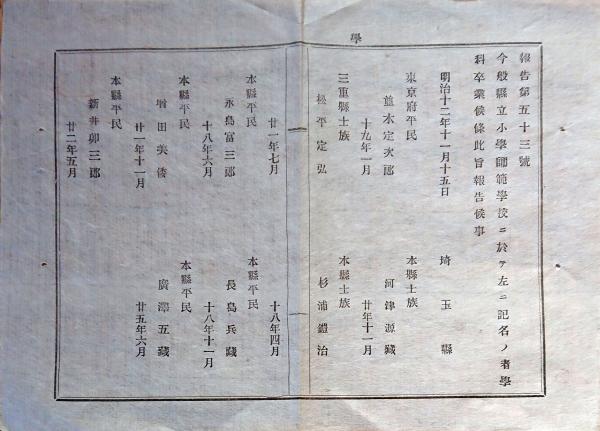 學
報告第五十三號
今般縣立小學師範學校ニ於テ左ニ記名ノ者學
科卒業候條此旨報告候事
明治十二年十一月十五日 埼玉縣
東京府平民 本縣士族
並木定次郎 河津源藏
十九年一月 廿年十一月
三重縣士族 本縣士族
松平定弘 杉浦鎧治
廿一年七月 十八年四月
本縣平民 本縣平民
永島富三郎 長島兵藏
十八年六月 十八年十一月
本縣平民 本縣平民
増田美倭 廣澤五藏
廿一年十一月 廿五年六月
本縣平民
新井卯三郎
廿二年五月